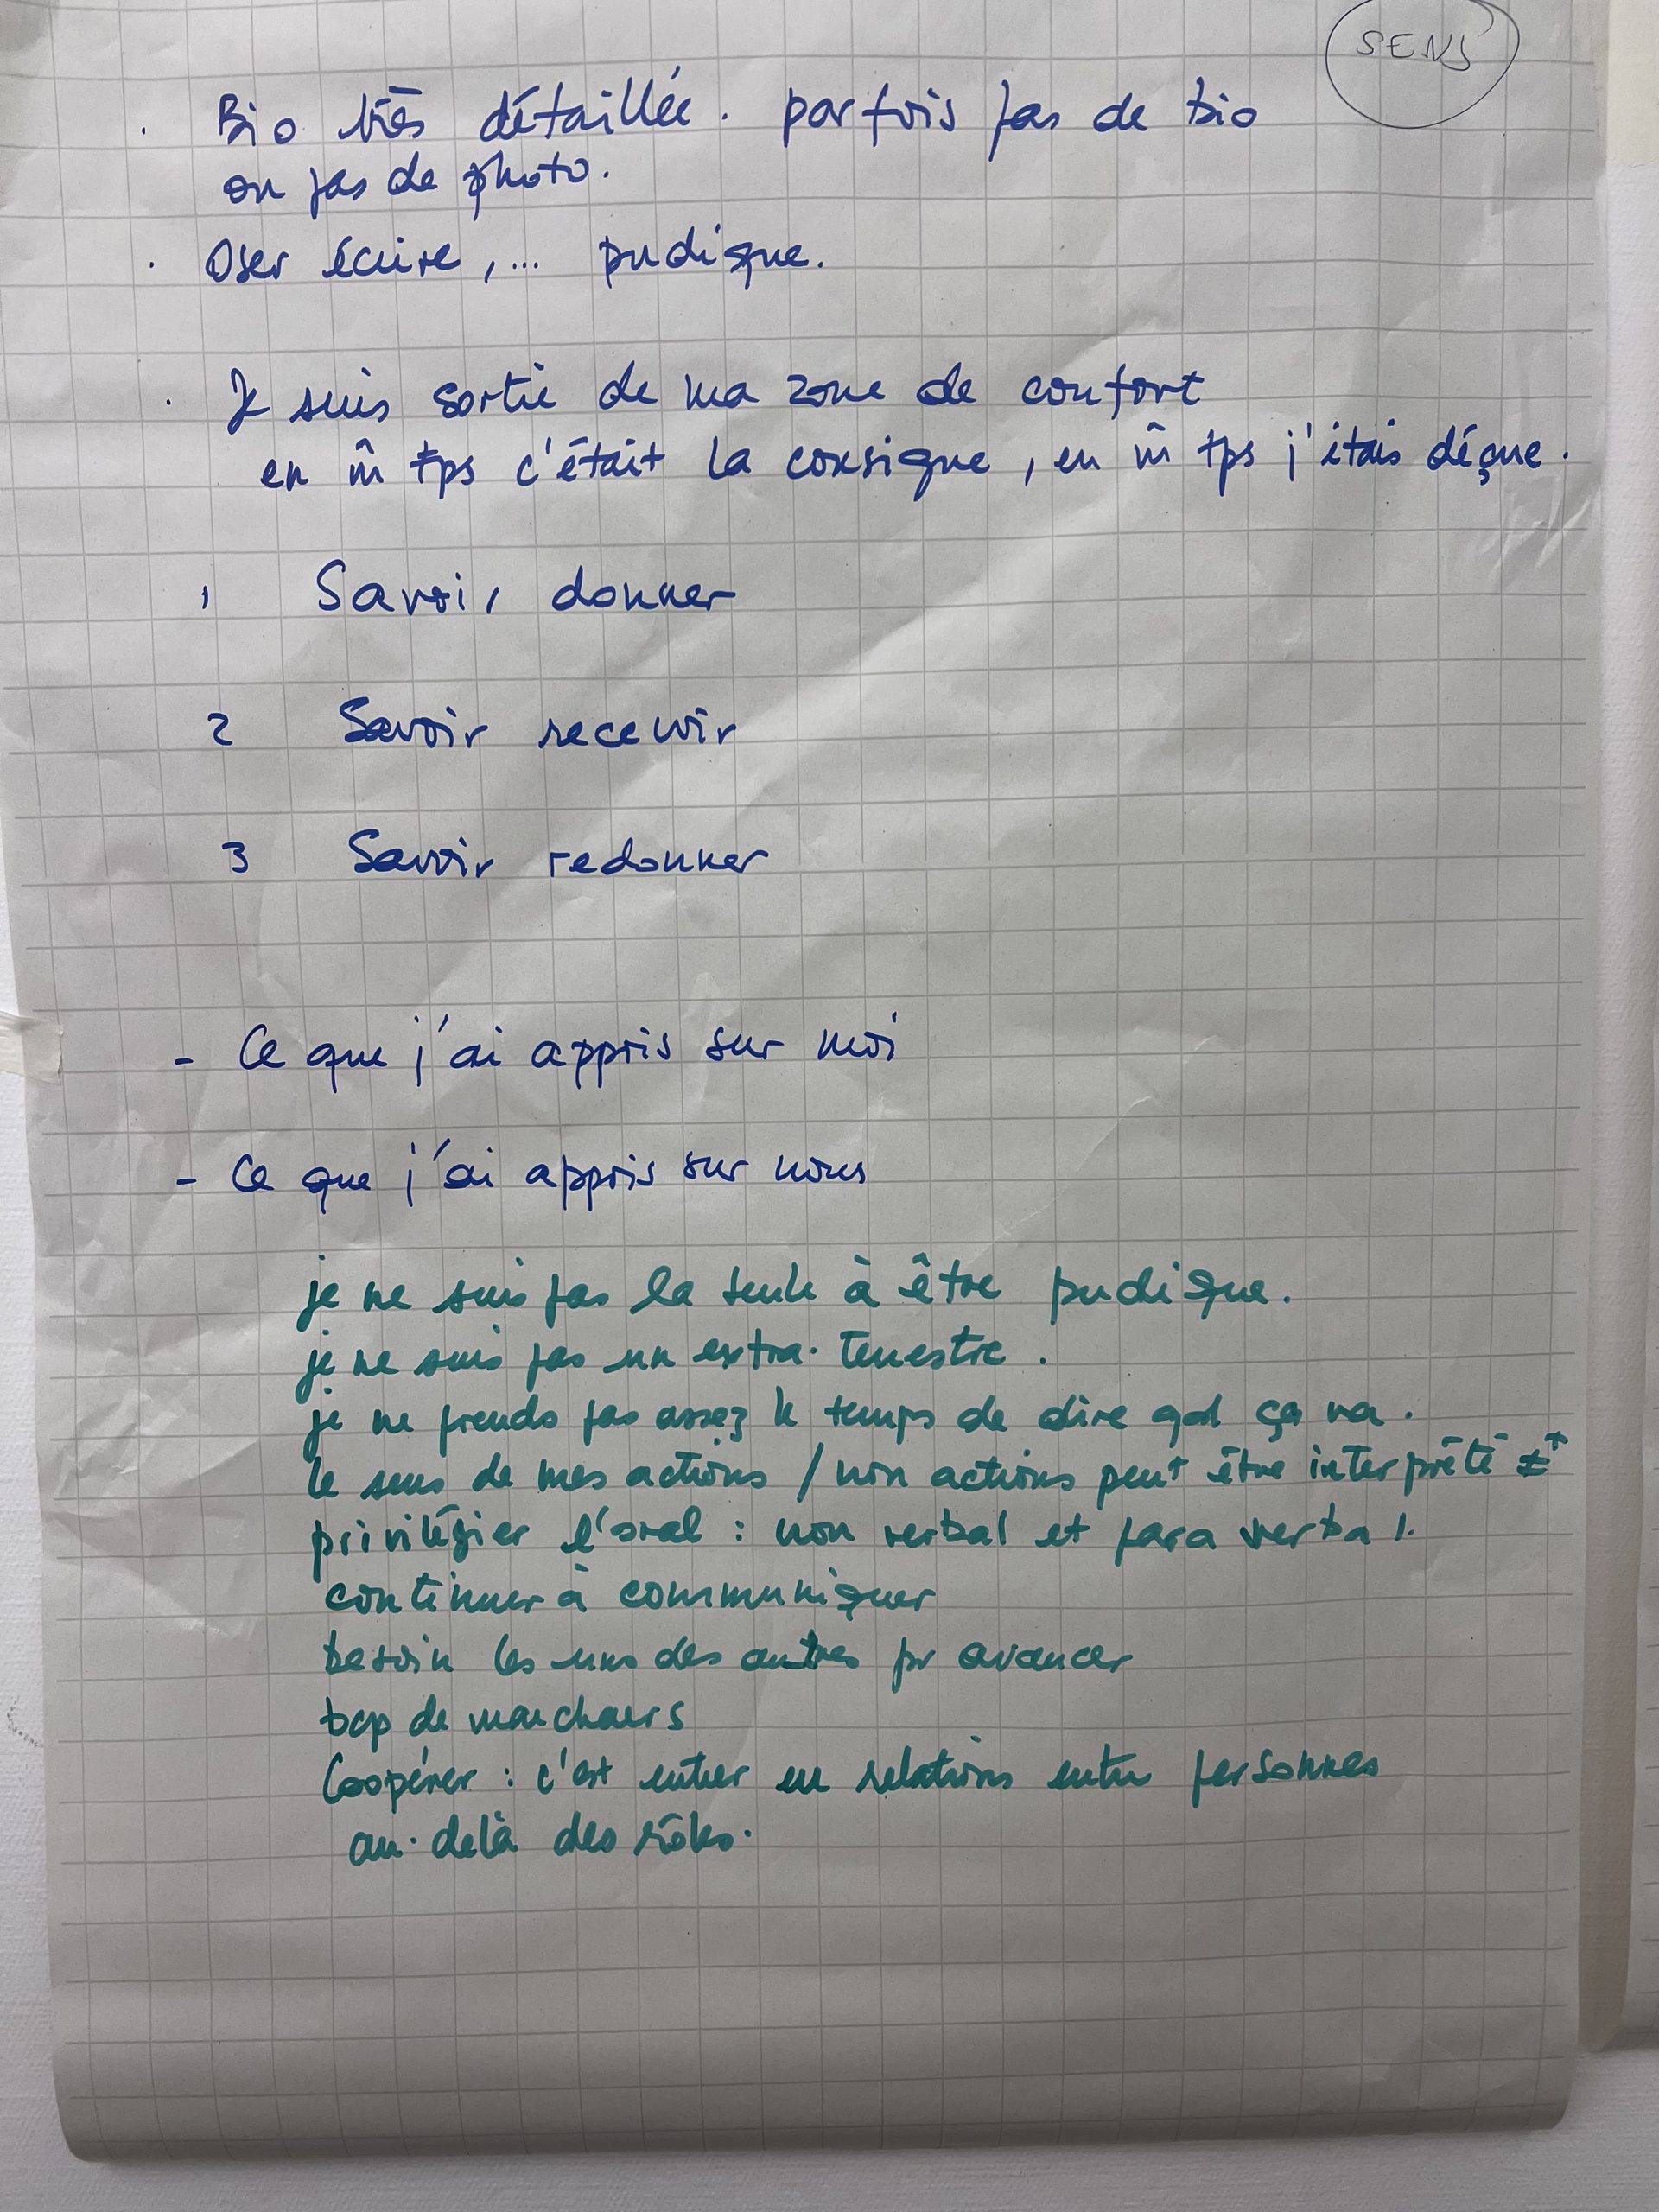 SENS
. Bio très détaillée. parfois pas de bio
ou pas de photo.
. Oser écrire, ... pudique.
. Je suis sortie de ma zone de confort
en m̂ tps c'était la consigne, en m̂ tps j'étais déçue.
1 Savoir donner
2 Savoir recevoir
3 Savoir redonner
- Ce que j'ai appris sur moi
- Ce que j'ai appris sur nous
je ne suis pas la seule à être pudique.
je ne suis pas un extra-terrestre.
je ne prends pas assez le temps de dire qd ça va.
le sens de mes actions / non actions peut être interprété ≠t
privilégier l'oral : non verbal et para verbal.
continuer à communiquer
besoin les uns des autres pr avancer
bcp de marcheurs
Coopérer : c'est entrer en relations entre personnes
au-delà des rôles.